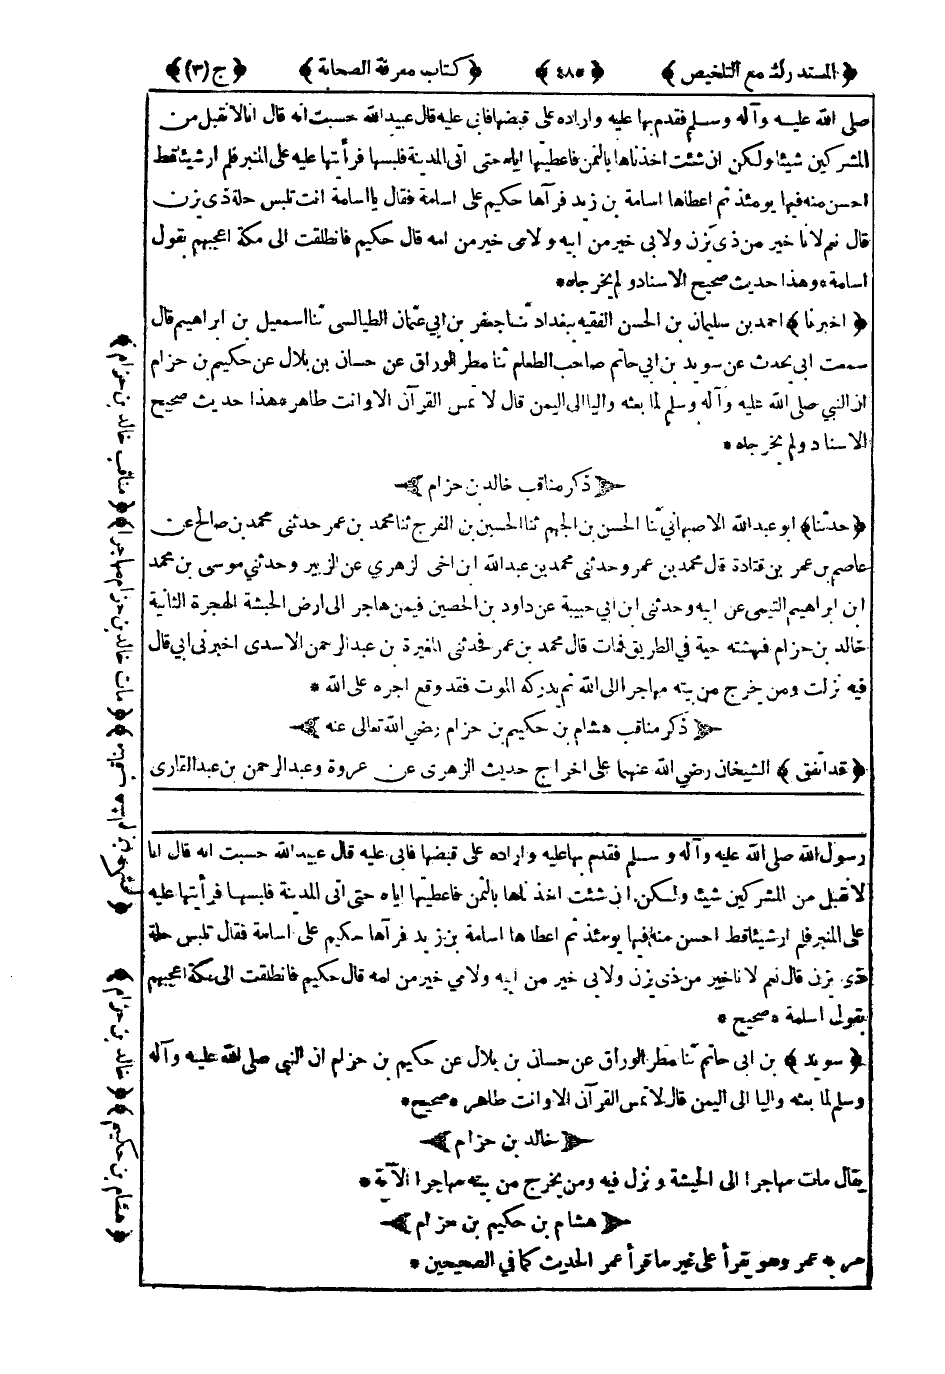 ﴿المستدرك مع التلخيص﴾ ﴿٤٨٥﴾ ﴿كتاب معرفة الصحابة﴾ ﴿ج(٣)﴾
صلى الله عليه وآله وسلم فقدم بها عليه واراده على قبضها فابى عليه قال عبيدالله حسبت انه قال انا لا نقبل من
المشركين شيئا ولكن ان شئت اخذناها بالثمن فاعطيتها اياه حتى اتى المدينة فلبسها فرأيتها عليه على المنبر فلم ار شيئا قط
احسن منه فيها يومئذ ثم اعطاها اسامة بن زيد فرآها حكيم على اسامة فقال يا اسامة انت تلبس حلة ذي يزن
قال نعم لانا خير من ذى يزن ولابى خير من ابيه ولامى خير من امه قال حكيم فانطلقت الى مكة اعجبهم بقول
اسامة * وهذا حديث صحيح الاسناد ولم يخرجاه *
﴿اخبرنا﴾ احمد بن سليمان بن الحسن الفقيه ببغداد ثنا جعفر بن ابي عثمان الطيالسى ثنا اسمعيل بن ابراهيم قال
سمعت ابى يحدث عن سويد بن ابي حاتم صاحب الطعام ثنا مطر الوراق عن حسان بن بلال عن حكيم بن حزام
ان النبي صلى الله عليه وآله وسلم لما بعثه واليا الى اليمن قال لا تمس القرآن الا وانت طاهر * هذا حديث صحيح
الاسناد ولم يخرجاه *
﴿ذكر مناقب خالد بن حزام﴾
﴿حدثنا﴾ ابو عبدالله الاصبهاني ثنا الحسن بن الجهم ثنا الحسين بن الفرج ثنا محمد بن عمر حدثنى محمد بن صالح عن
عاصم بن عمر بن قتادة قال محمد بن عمر وحدثنى محمد بن عبدالله ابن اخى الزهري عن الزبير وحدثني موسى بن محمد
ابن ابراهيم التيمى عن ابيه وحدثنى ابن ابي حبيبة عن داود بن الحصين فيمن هاجر الى ارض الحبشة الهجرة الثانية
خالد بن حزام فنهشته حية في الطريق فمات قال محمد بن عمر فحدثنى المغيرة بن عبدالرحمن الاسدى اخبرنى ابي قال
فيه نزلت ومن يخرج من بيته مهاجرا الى الله ثم يدركه الموت فقد وقع اجره على الله *
﴿ذكر مناقب هشام بن حكيم بن حزام رضي الله تعالى عنه﴾
﴿قد اتفق﴾ الشيخان رضي الله عنهما على اخراج حديث الزهرى عن عروة وعبدالرحمن بن عبدالقارى
رسول الله صلى الله عليه وآله وسلم فقدم بها عليه واراده على قبضها فابى عليه قال عبيدالله حسبت انه قال انا
لا نقبل من المشركين شيئا ولكن ان شئت اخذناها بالثمن فاعطيتها اياه حتى اتى المدينة فلبسها فرأيتها عليه
على المنبر فلم ار شيئا قط احسن منه فيها يومئذ ثم اعطاها اسامة بن زيد فرآها حكيم على اسامة فقال تلبس حلة
ذى يزن قال نعم لانا خير من ذى يزن ولابى خير من ابيه ولامي خير من امه قال حكيم فانطلقت الى مكة اعجبهم
بقول اسامة * صحيح *
﴿سويد﴾ بن ابى حاتم ثنا مطر الوراق عن حسان بن بلال عن حكيم بن حزام ان النبى صلى الله عليه وآله
وسلم لما بعثه واليا الى اليمن قال لا تمس القرآن الا وانت طاهر * صحيح *
﴿خالد بن حزام﴾
يقال مات مهاجرا الى الحبشة ونزل فيه ومن يخرج من بيته مهاجرا الآية *
﴿هشام بن حكيم بن حزام﴾
عمر وهو يقرأ على غير ما قرأ عمر الحديث كما في الصحيحين *
﴿مناقب خالد بن حزام﴾
﴿مات خالد بن حزام مهاجرا﴾
﴿خالد بن حزام﴾
﴿هشام بن حكيم﴾